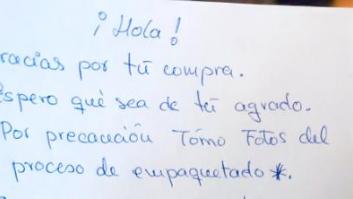 ¡Hola!
racias por tú compra.
espero qué sea de tú agrado.
Por precaución Tómo Fotos del
proceso de empaquetado *.